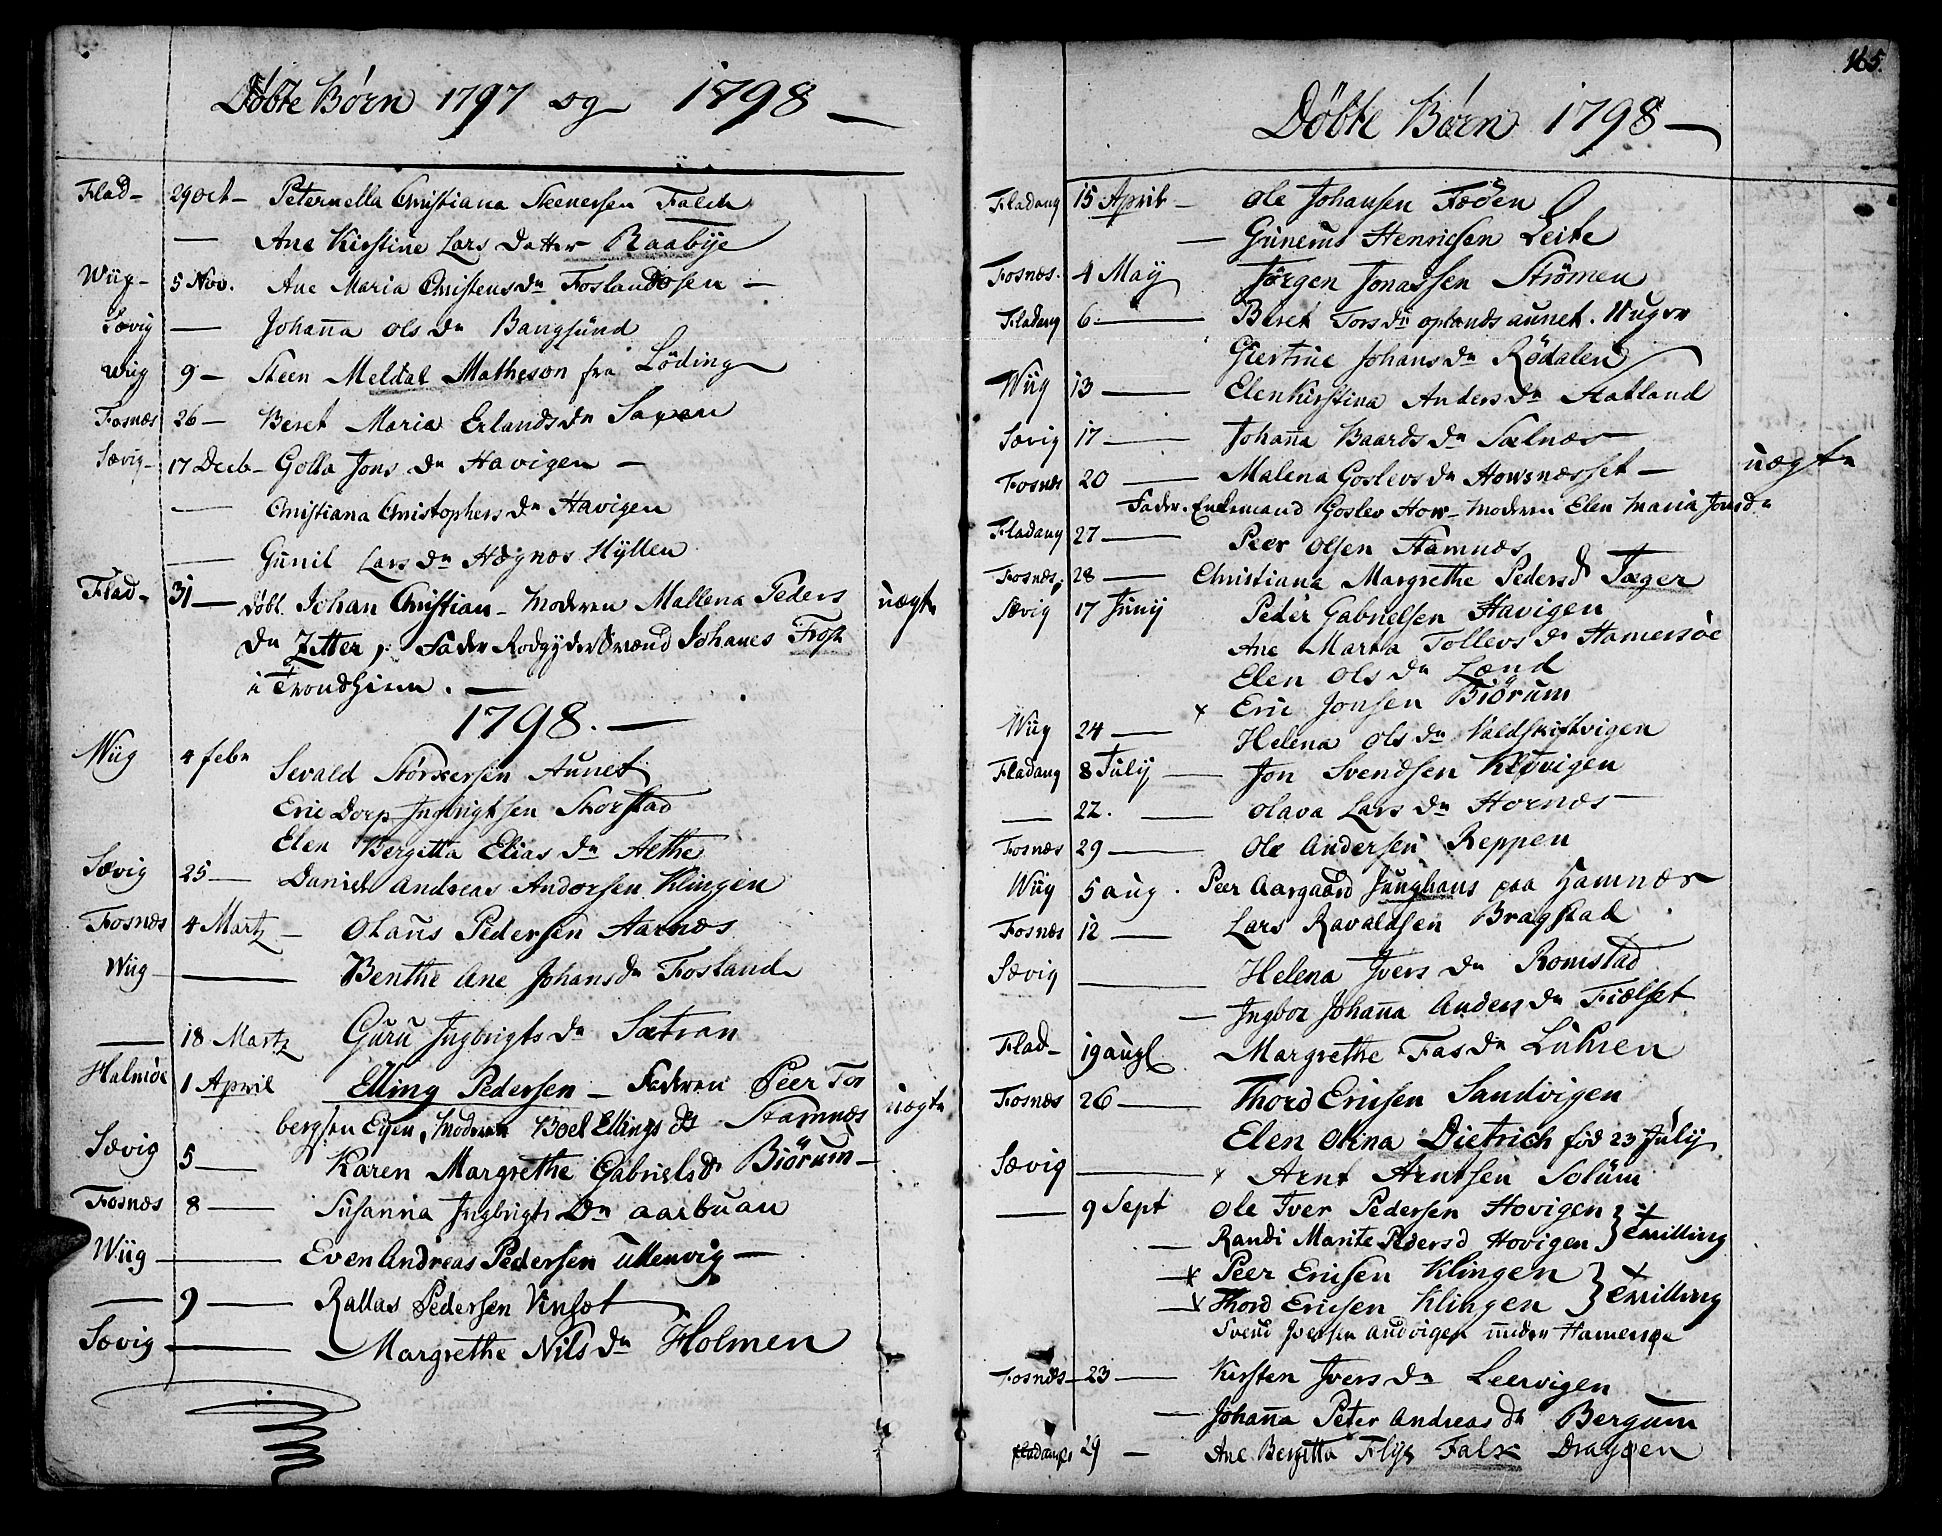 Døbte Børn 1797 og 1798 —
Flad- 29 Oct- Peternella Christiana Steenersen Falch
— Ane Kirstine Lars Datter Raabye
Wiig- 5 Nov. Ane Maria Christensdr Foslandosen —
Sævig — Johanna Ols dr Bangsund
Wiig 9 — Steen Meldal Matheson fra Löding
Fosnæs 26 — Beret Maria Erlandsdr Saxen
Sævig- 17 Decb- Golla Jons dr Havigen —
— Christiana Christophers dr Havigen
— Gunil Lars dr Hægnæs Hyllen
Flad- 31 — døbt Johan Christian- Moderen Mallena Peders uægte
dr Zitter, Fader Rodgyder Svend Johanes Frost
i Trondhiem. —
1798. —
Wiig 4 febr Sevald Størkersen Aunet
Eric Dorp Ingbrigtsen Storstad
Elen Bergitta Elias dr Aethe
Sævig 25 — Daniel Andreas Andersen Klingen
Fosnæs 4 Martz — Olaus Pedersen Aarnæs
Wiig — Benthe Ane Johansdr Fosland
— 18 Martz Guru Ingbrigts dr Sætran
Halmöe 1 April Elling Pedersen — Faderen Peer Tor
bergsen Egen, Moderen Boel Ellings dr Stamnæs uægte
Sævig 5 — Karen Margrethe Gabrielsdr Biörum —
Fosnæs 8 — Susanna Ingbrigts Dr Aarbuan
Wiig — Even Andreas Pedersen Ullenvig —
— 9 — Rallas Pedersen Vinsæt
Sævig — Margrethe Nils dr Holmen
165.
Døbte Børn 1798 —
Fladang 15 April — Ole Johansen Fæøen
— Gunerus Henricsen Leite
Fosnæs. 4 May Jørgen Jonassen Strømen
Fladang 6 — Beret Torsdr oplandsaunet.
Giertrue Johansdr Rødalen
Wiig 13 — Elen Kirstina Anders dr Hatland
Sævig 17 — Johanna Baards dr Salnæs
Fosnæs 20 — Malena Goslevs dr Howsnæsset — uægte
Fader Enkemand Goslev How- Moderen Elen Maria Jonsdr
Fladang 27 — Peer Olsen Hamnæs
Fosnæs 28 — Christiana Margrethe Pedersd Jæger
Sævig 17 Juny Peder Gabrielsen Havigen
Ane Marta Tollevs dr Hamersöe
Elen Ols dr Lænd
x Eric Jonsen Biörum
Wiig 24 — Helena Ols dr Valdskistvigen
Fladang 8 July — Jon Svendsen Kløvigen
— 22. — Olava Lars dr Hornæs
Fosnæs 29 — Ole Andersen Reppen
Wiig 5 Aug. Peer Aargaard Junghans paa Hamnæs
Fosnæs 12 — Lars Ravaldsen Bragstad
Sævig — Helena Ivers dr Romstad
— Ingbor Johanna Anders dr Fiælset
Flad- 19 augt Margrethe Fas dr Lühsen
Fosnæs 26 — Thord Ericsen Sandvigen
Elen Olina Dietrich fød 23 July
Sævig — x Arnt Arntsen Solum
— 9 Sept Ole Iver Pedersen Hovigen
— Randi Marite Pedersd Hovigen } tvilling
— x Peer Ericsen Klingen
— x Thord Ericsen Klingen } x tvilling
Svend Iversen Andvigen under Hamerøe
Fosnæs — 23 — Kirsten Ivers dr Leervigen
— Johanna Peter Andreas dr Bergum
Fladanger 29 — Ane Bergitta Flye Falk Dragøen